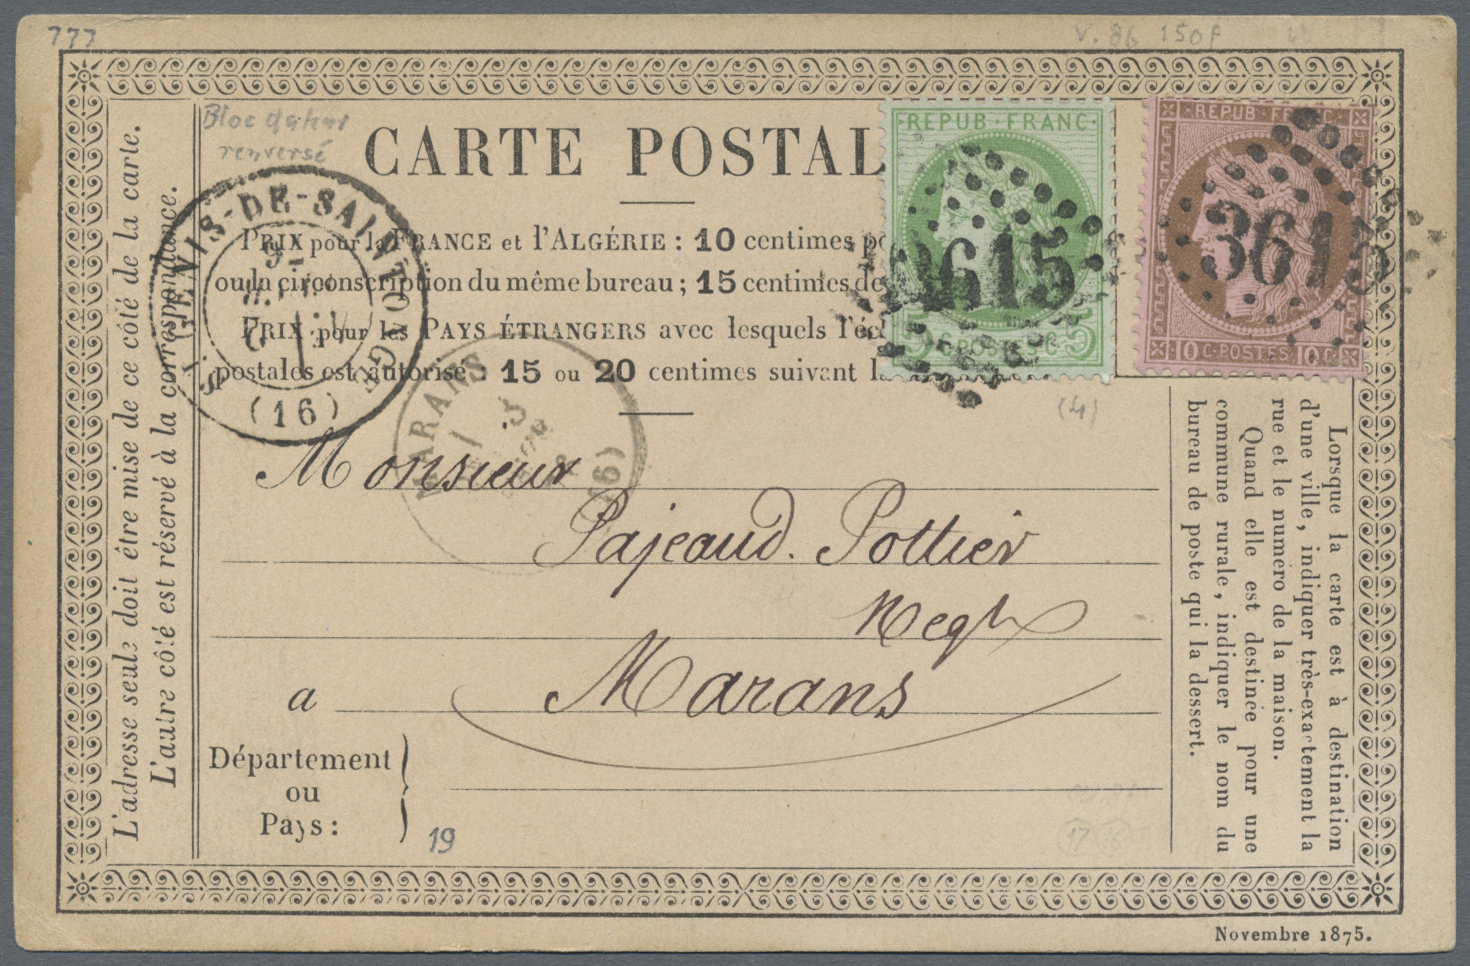 777
V. 86 150f
Bloc dateur
renversé
CARTE POSTAL
REPUB·FRANC·
REPUB·FRANC·
3615
3615
5 C·POSTES·5 C
10 C·POSTES·10 C
PRIX pour la FRANCE et l'ALGÉRIE : 10 centimes
ou la circonscription du même bureau ; 15 centimes de
PRIX pour les PAYS ÉTRANGERS avec lesquels l'éc
postales est autorisé : 15 ou 20 centimes suivant
ST GENIS-DE-SAINTONGE
(16)
MARANS
(16)
(4)
Monsieur
Pajeaud. Pottier
Negt
a Marans
Département
ou
Pays :
19
L'adresse seule doit être mise de ce côté de la carte.
L'autre côté est réservé à la correspondance.
Lorsque la carte est à destination
d'une ville, indiquer très-exactement la
rue et le numéro de la maison.
Quand elle est destinée pour une
commune rurale, indiquer le nom du
bureau de poste qui la dessert.
17 16
Novembre 1875.